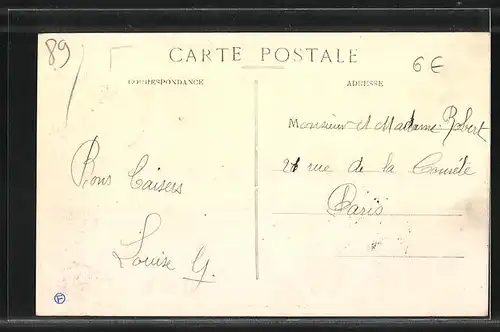 89
CARTE POSTALE
6€
CORRESPONDANCE
ADRESSE
Monsieur et Madame Robert
rue de la Comète
Paris
Bons Baisers
Louise G.
F